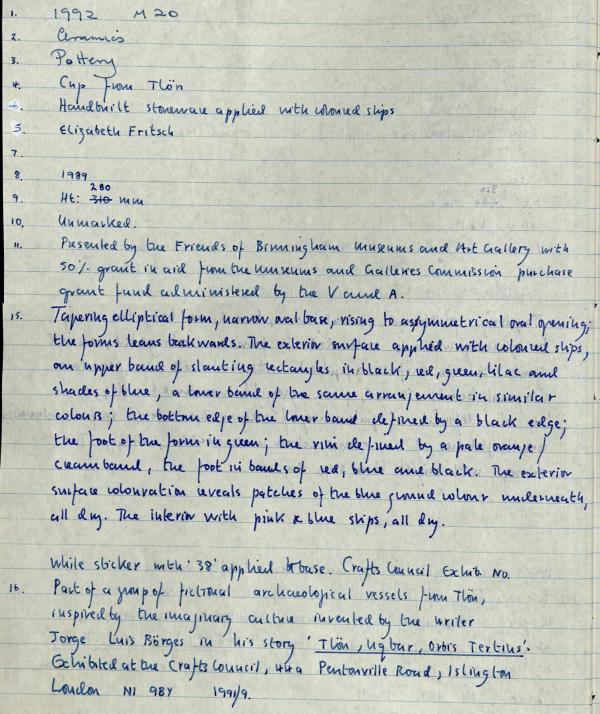 1. 1992 M 20
2. Ceramics
3. Pottery
4. Cup from Tlön
6. Handbuilt stoneware applied with coloured slips
5. Elizabeth Fritsch
7.
8. 1989
280
9. Ht: 310 mm
10. Unmarked.
11. Presented by the Friends of Birmingham Museums and Art Gallery with
50% grant in aid from the Museums and Galleries Commission purchase
grant fund administered by the V and A.
15. Tapering elliptical form, narrow oval base, rising to assymmetrical oval opening;
the forms leans backwards. The exterior surface applied with coloured slips,
an upper band of slanting rectangles in black, red, green, lilac and
shades of blue, a lower band of the same arrangement in similar
colours; the bottom edge of the lower band defined by a black edge;
the foot of the form in green; the rim defined by a pale orange /
cream band, the foot in bands of red, blue and black. The exterior
surface colouration reveals patches of the blue ground colour underneath,
all dry. The interior with pink & blue slips, all dry.
White sticker with '38' applied to base. Crafts Council Exhib. No.
16. Part of a group of fictional archaeological vessels from Tlön,
inspired by the imaginary culture invented by the writer
Jorge Luis Börges in his story 'Tlön, Uqbar, Orbis Tertius'.
Exhibited at the Crafts Council, 44a Pentonville Road, Islington
London N1 9BY 1991/9.